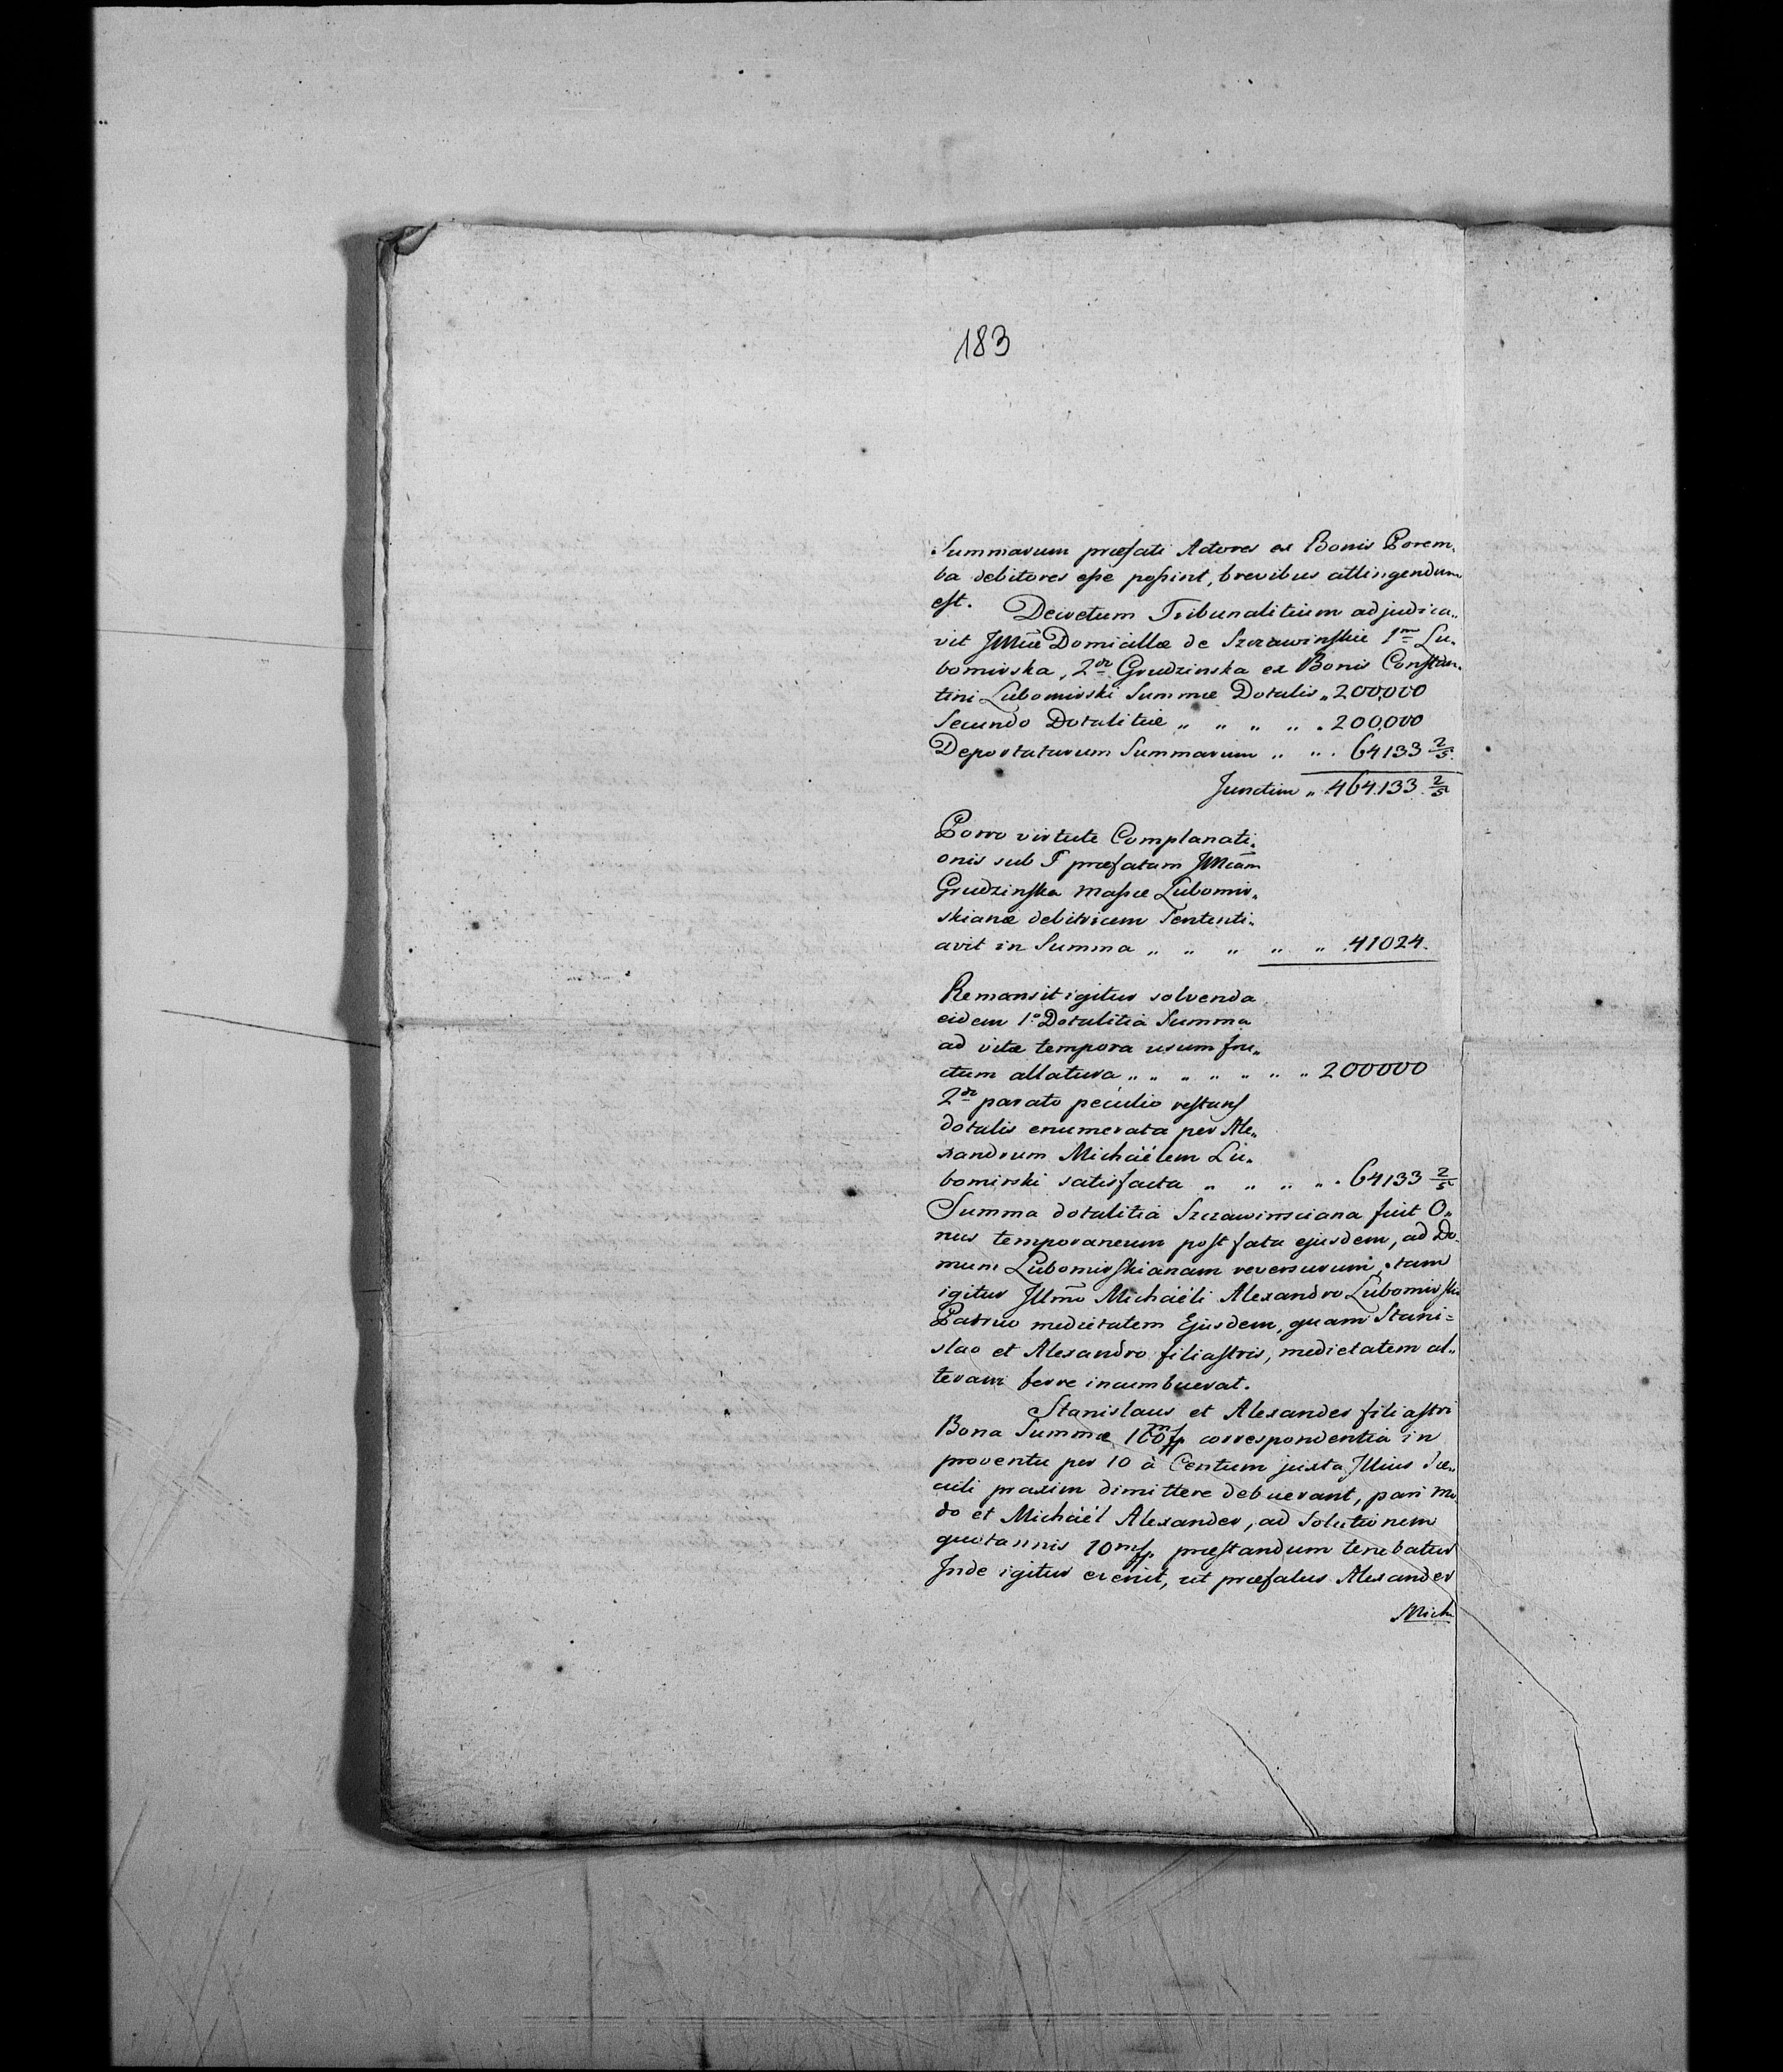 183
Summarum præfati Actores ex Bonis Porem„
ba debitores esse possint, brevibus attingendum
est. Decretum Tribunalitium adjudica„
vit Illmæ Domicillæ de Szczawinskie 1mo Lu„
bomirska, 2do Grudzinska ex Bonis Constan„
tini Lubomirski Summæ Dotalis „ 200,000
Secundo Dotalitiæ „ „ „ „ „ 200,000
Deportatarum Summarum „ „ „ 64133 2/5.
Junctim „ 464.133. 2/5
Porro virtute Complanati„
onis sub T præfatam Illmam
Grudzinska massæ Lubomir„
skianæ debitricem Sententi„
avit in Summa „ „ „ „ „ 41024.
Remansit igitur solvenda
eidem 1o Dotalitia Summa
ad vitæ tempora usum fru„
ctum allatura „ „ „ „ „ „ „ 200000
2do parato peculio restans
dotalis enumerata per Ale„
xandrum Michäelem Lu„
bomirski satisfacta „ „ „ „ „ 64133 2/5
Summa dotalitia Szczawinsciana fuit O„
nus temporaneum post fata ejusdem, ad Do„
mum Lubomirskianam reversurum, tam
igitur Illmo Michäeli Alexandro Lubomirski
Patruo medietatem Ejusdem, quam Stani=
slao et Alexandro filiastris, medietatem al„
teram ferre incumbuerat.
Stanislaus et Alexander filiastri
Bona Summæ 100m fp. correspondentia in
proventu per 10 à Centum juxta Illius sæ„
culi praxim dimittere debuerant, pari mo„
do et Michäel Alexander, ad Solutionem
quotannis 10m fp. præstandum tenebatur
Inde igitur evenit, ut præfatus Alexander
Mich